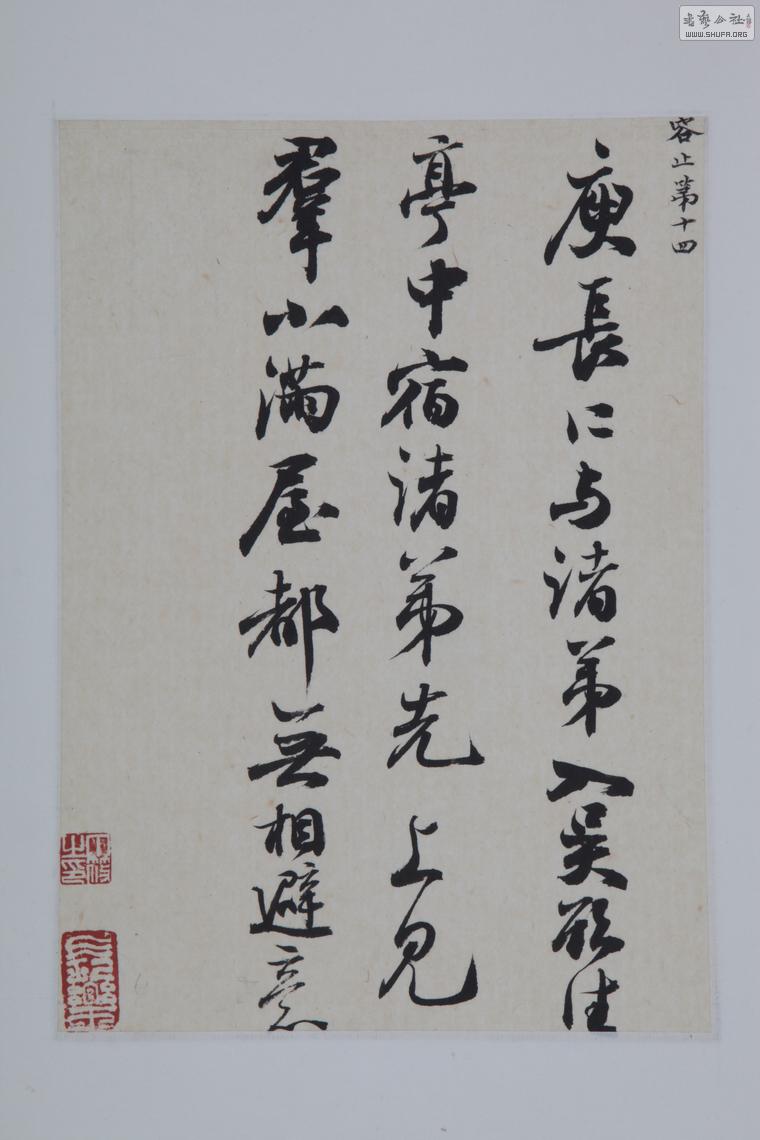 書藝公社
WWW.SHUFA.ORG
容止第十四
庾長仁与諸弟入吴欲住
亭中宿諸弟先上見
羣小满屋都無相避意
長樂